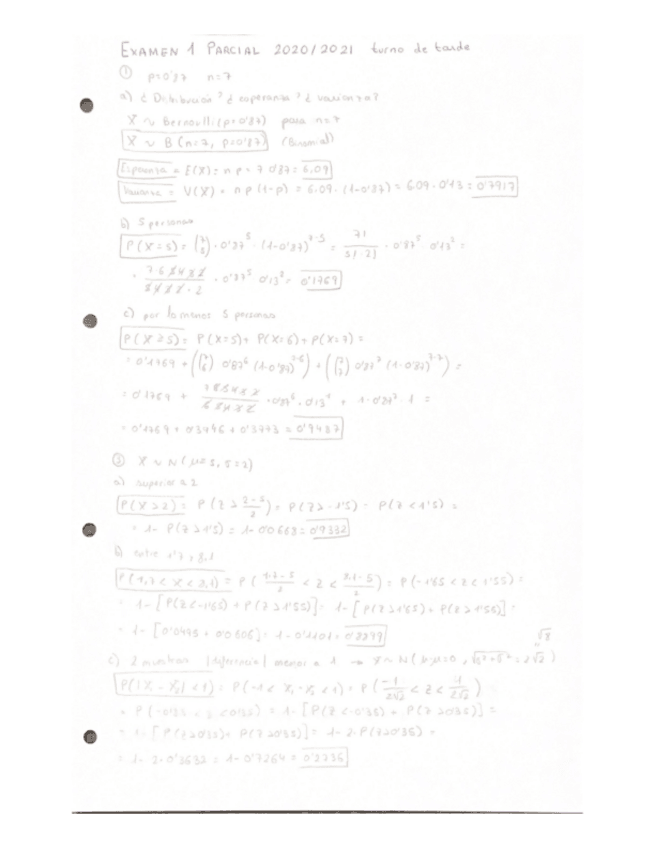 EXAMEN 1 PARCIAL 2020/2021 turno de tarde
① p=0'87 n=7
a) ¿Distribución? ¿esperanza? ¿varianza?
X ~ Bernoulli (p=0'87) para n=7
X ~ B(n=7, p=0'87) (Binomial)
Esperanza = E(X) = n p = 7 · 0'87 = 6.09
Varianza = V(X) = n p (1-p) = 6.09 · (1-0'87) = 6.09 · 0'13 = 0'7917
b) 5 personas
P(X=5) = (7 5) · 0'87^5 · (1-0'87)^7-5 = 7! / 5! · 2! · 0'87^5 · 0'13^2 =
= 7·6·5·4·3·2 / 5·4·3·2·2 · 0'87^5 · 0'13^2 = 0'1769
c) por lo menos 5 personas
P(X≥5) = P(X=5) + P(X=6) + P(X=7) =
= 0'1769 + ((7 6) 0'87^6 (1-0'87)^7-6) + ((7 7) 0'87^7 (1-0'87)^7-7) =
= 0'1769 + 7·6·5·4·3·2 / 6·5·4·3·2 · 0'87^6 · 0'13^1 + 1 · 0'87^7 · 1 =
= 0'1769 + 0'3946 + 0'3773 = 0'9487
② X ~ N(μ=5, S=2)
a) superior a 2
P(X>2) = P(Z > 2-5 / 2) = P(Z > -1'5) = P(Z < 1'5) =
= 1 - P(Z > 1'5) = 1 - 0'0668 = 0'9332
b) entre 1'7 y 8,1
P(1,7 < X < 8,1) = P(1.7-5 / 2 < Z < 8.1-5 / 2) = P(-1'65 < Z < 1'55) =
= 1 - [P(Z < -1'65) + P(Z > 1'55)] = 1 - [P(Z > 1'65) + P(Z > 1'55)] =
= 1 - [0'0495 + 0'0606] = 1 - 0'1101 = 0'8899
√8
c) 2 muestras |diferencia| menor a 1 → X ~ N(μ-μ=0, = 2√2)
P(|X₁-X₂| < 1) = P(-1 < X₁-X₂ < 1) = P(-1 / 2√2 < Z < 1 / 2√2)
= P(-0'35 < Z < 0'35) = 1 - [P(Z < -0'35) + P(Z > 0'35)] =
= 1 - [P(Z > 0'35) + P(Z > 0'35)] = 1 - 2 · P(Z > 0'35) =
= 1 - 2 · 0'3632 = 1 - 0'7264 = 0'2736